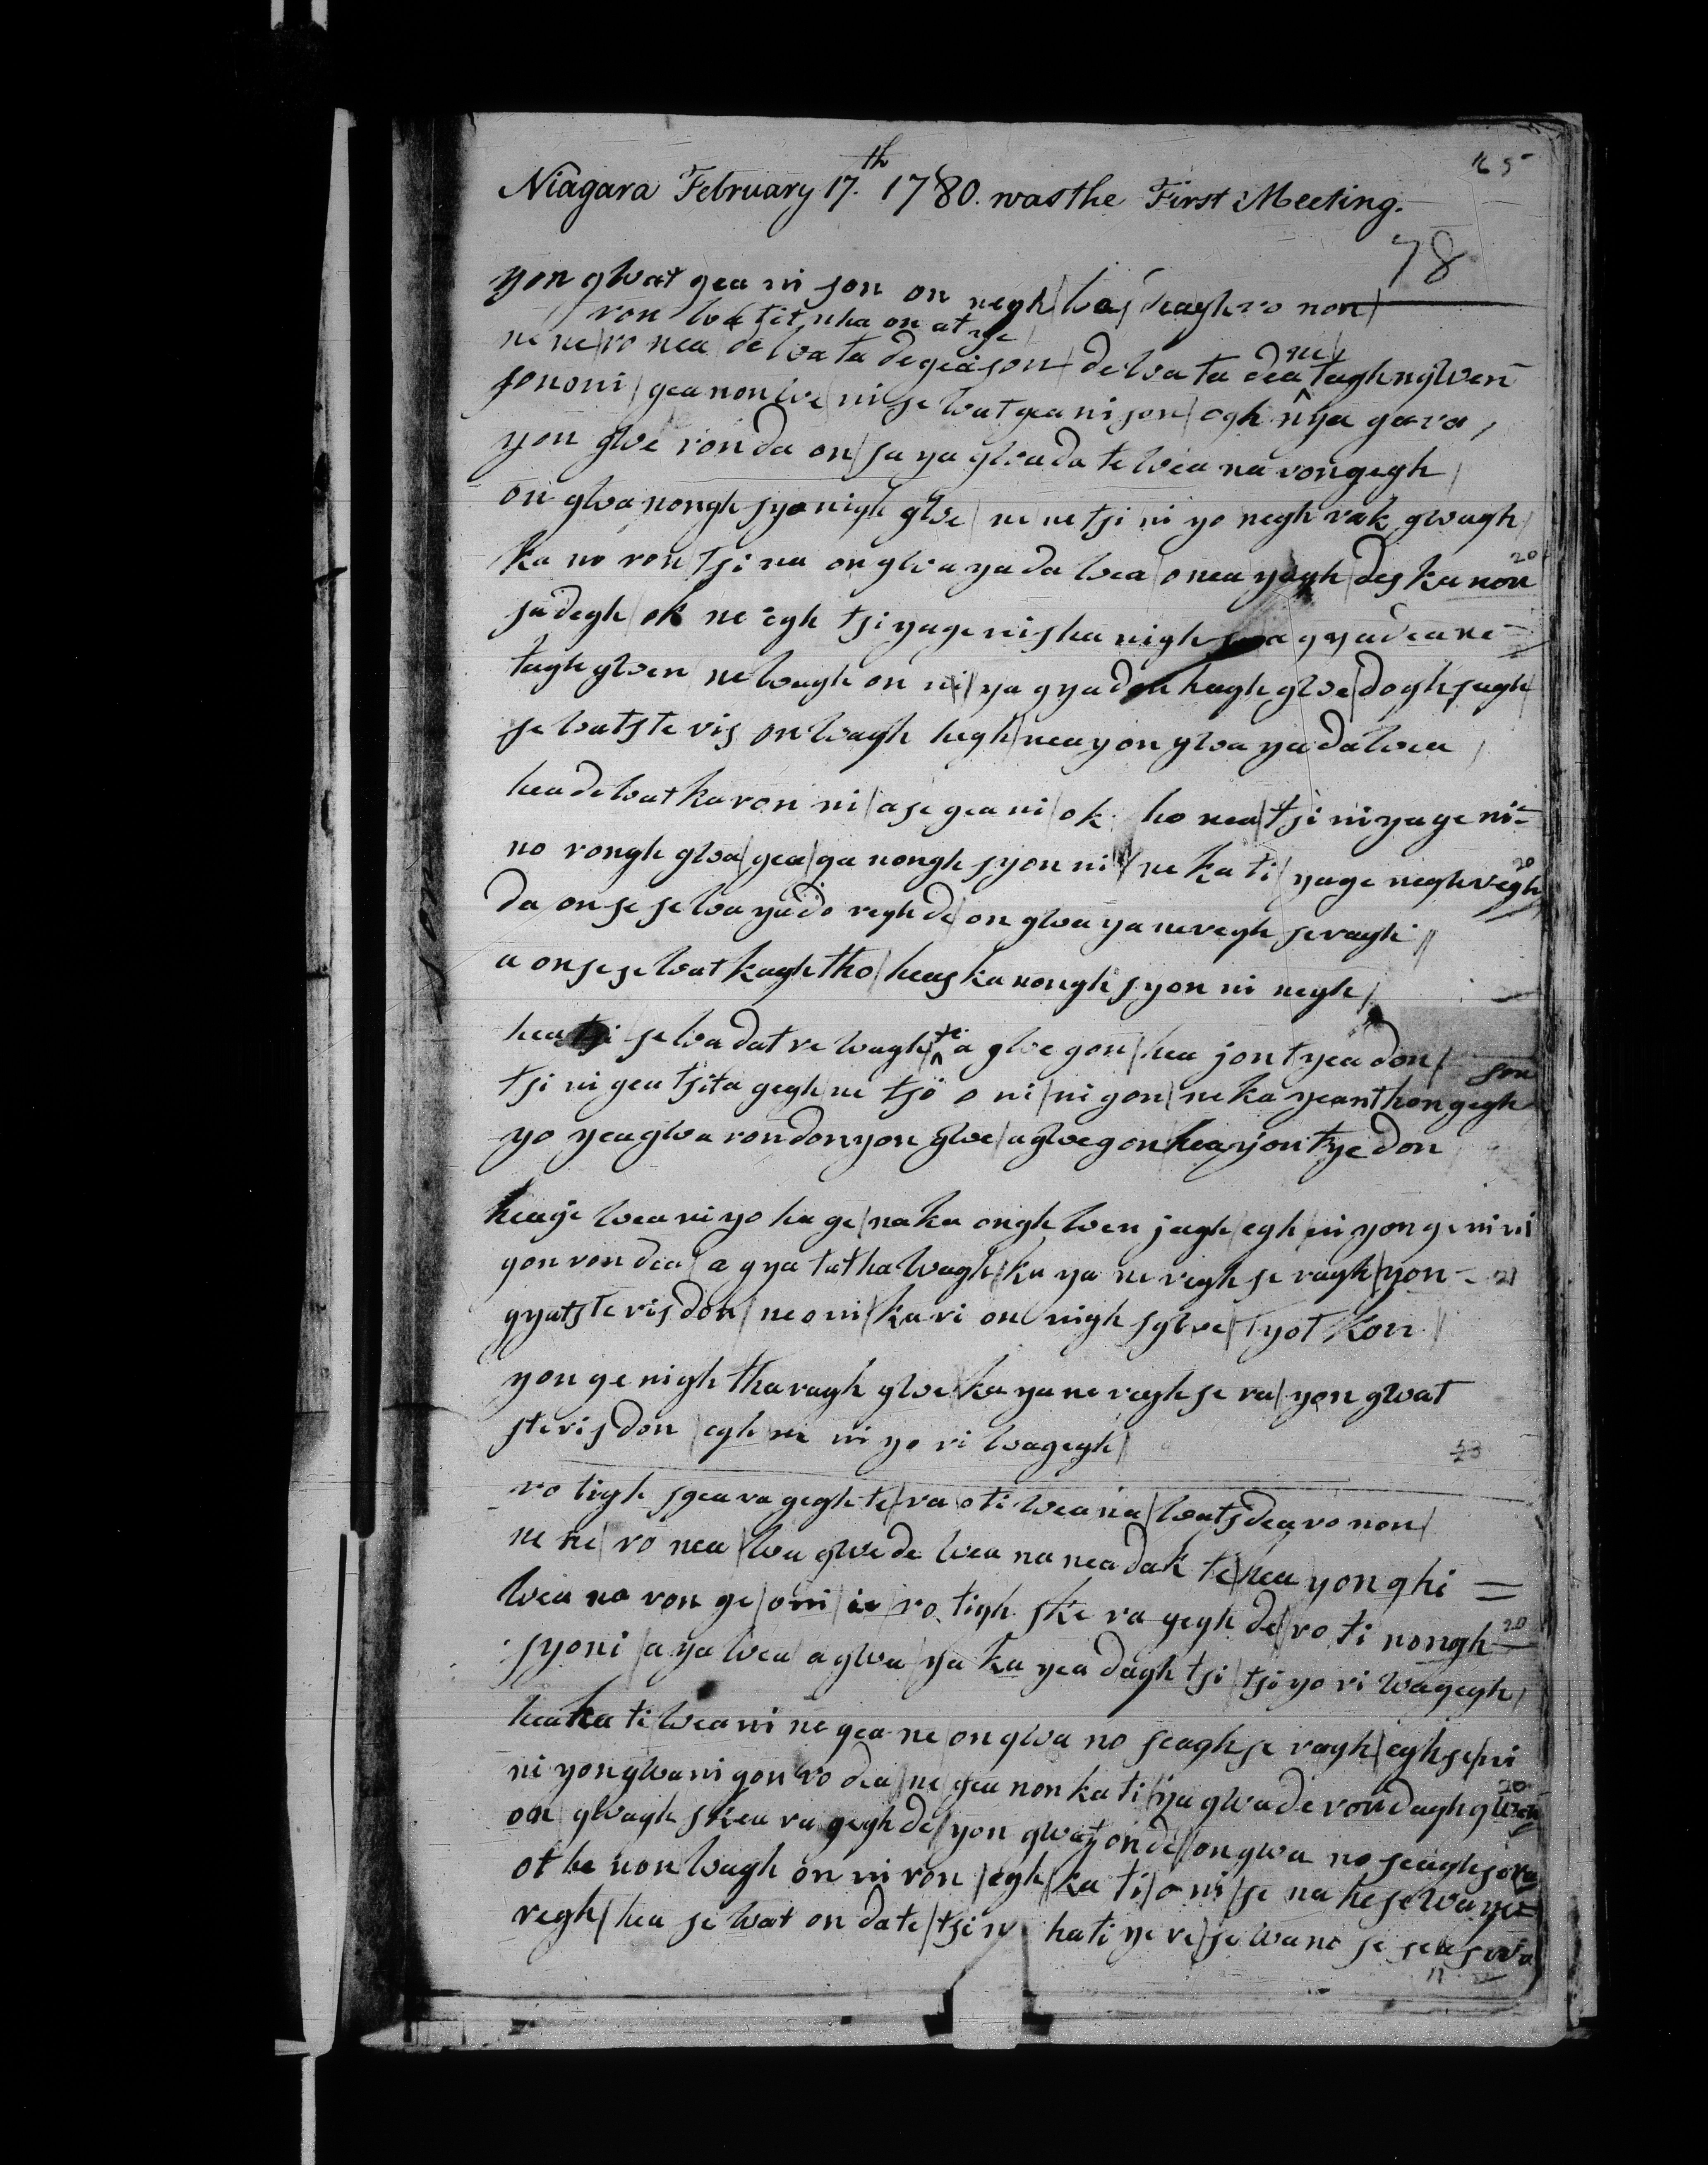 165
Niagara February 17.th 1780. was the First Meeting.
78
yon gwat gea ni son on negh/wasdeaghro non/
ron wa tit nha on at ye
ne ne/ro nea/de wa ta degeaison/de wa ta dea ne taghngwen
sononi/gea non we/ni se wat gea ni son/egh n ya ga ra,
yon gwe ron da on/sa ya gwada te wea na rongegh,
on gwa nongh syo nigh gwe/ne ne tsi ni yo negh rak gwagh/
ka no ron tsi na on gwa ya da wea/o nea yagh/des ka non 20
sa degh/ok ne egh tsi yage nis ha nigh a g ya dea ne-
tagh gwen/ne wagh on ni/ya g ya don hagh gwe/doghsagh/
se wats te ris on wagh hegh/nea yon gwa ya da wea,
hea de wat ka ron ni/a se gea ni/ok ho nea/tsi ni ya ge ni-
no rongh gwa/gea/ga nongh syon ni/ne ka ti/yage neghregh 20
da on se se wa ya do regh de/on gwa ya neregh seragh//
a on se se wat kagh tho/heas ka nongh syon ni negh,
hea tsi se wa dat re wagh te a gwe gon/hea jon tyea don/
son
tsi ni gea tsita gegh ne tsi o ni/ni gon/ne ka yeanthongegh
yo yea gwa rondonyon gwe/agwegon heajontye don
heaje wea ni yo ha ge/na ka ongh wen jagh/egh ni yon ge ni ni
gon ron dea/a g ya tat ha wagh/ka ya ne regh se ragh/yon- 21
gyats te ris don/ne o ni/ka ri on nigh sgwe/tyot kon//
yon ge nigh tha ragh gwe/ka ya ne regh se ra/yon gwat
ste ris don/egh ne ni yo ri wagegh/
23
ro tigh sgea ra gegh te/ra oti wea na/watsdea ro non/
ne ne/ro nea/wa gwe de wea na nea dak te/nea yon ghi =
wea na ron ge/oni ro tigh ske ra gegh de/ro ti nongh= 20
syoni/a ya wea a gwa/ya ka yea dagh tsi/tsi yo ri wagegh,
hea ka ti/wea ni ne gea ne/on gwa no seagh se ragh/egh se/ni
ni yon gwa ni gon ro dea/ne gea non ka ti/ya gwa de ron dagh gwen 20
on gwagh skea ra gegh de/yon gwat on de/on gwa no seagh se ra
ot he non wagh on ni ron/egh/ka ti/o ni/se na he se wa ye=
regh/hea se wat on da te/tsi n hati ye re/se wa no se sea swa
11
son